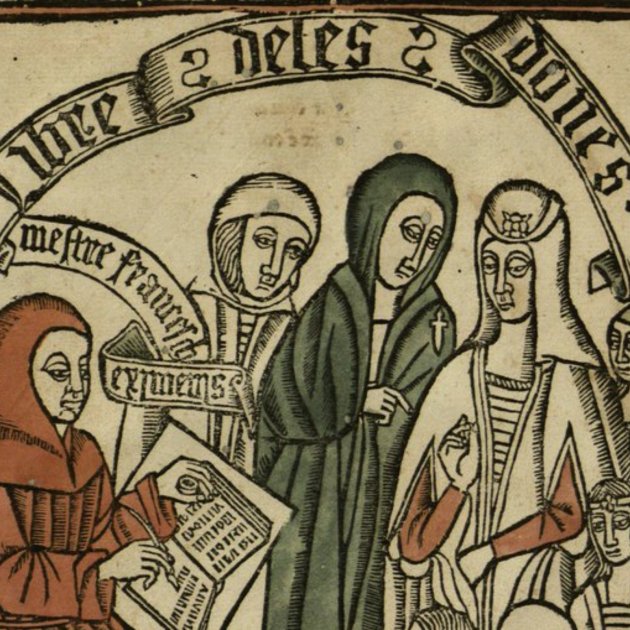 libre deles dones
mestre francesch
eximenis